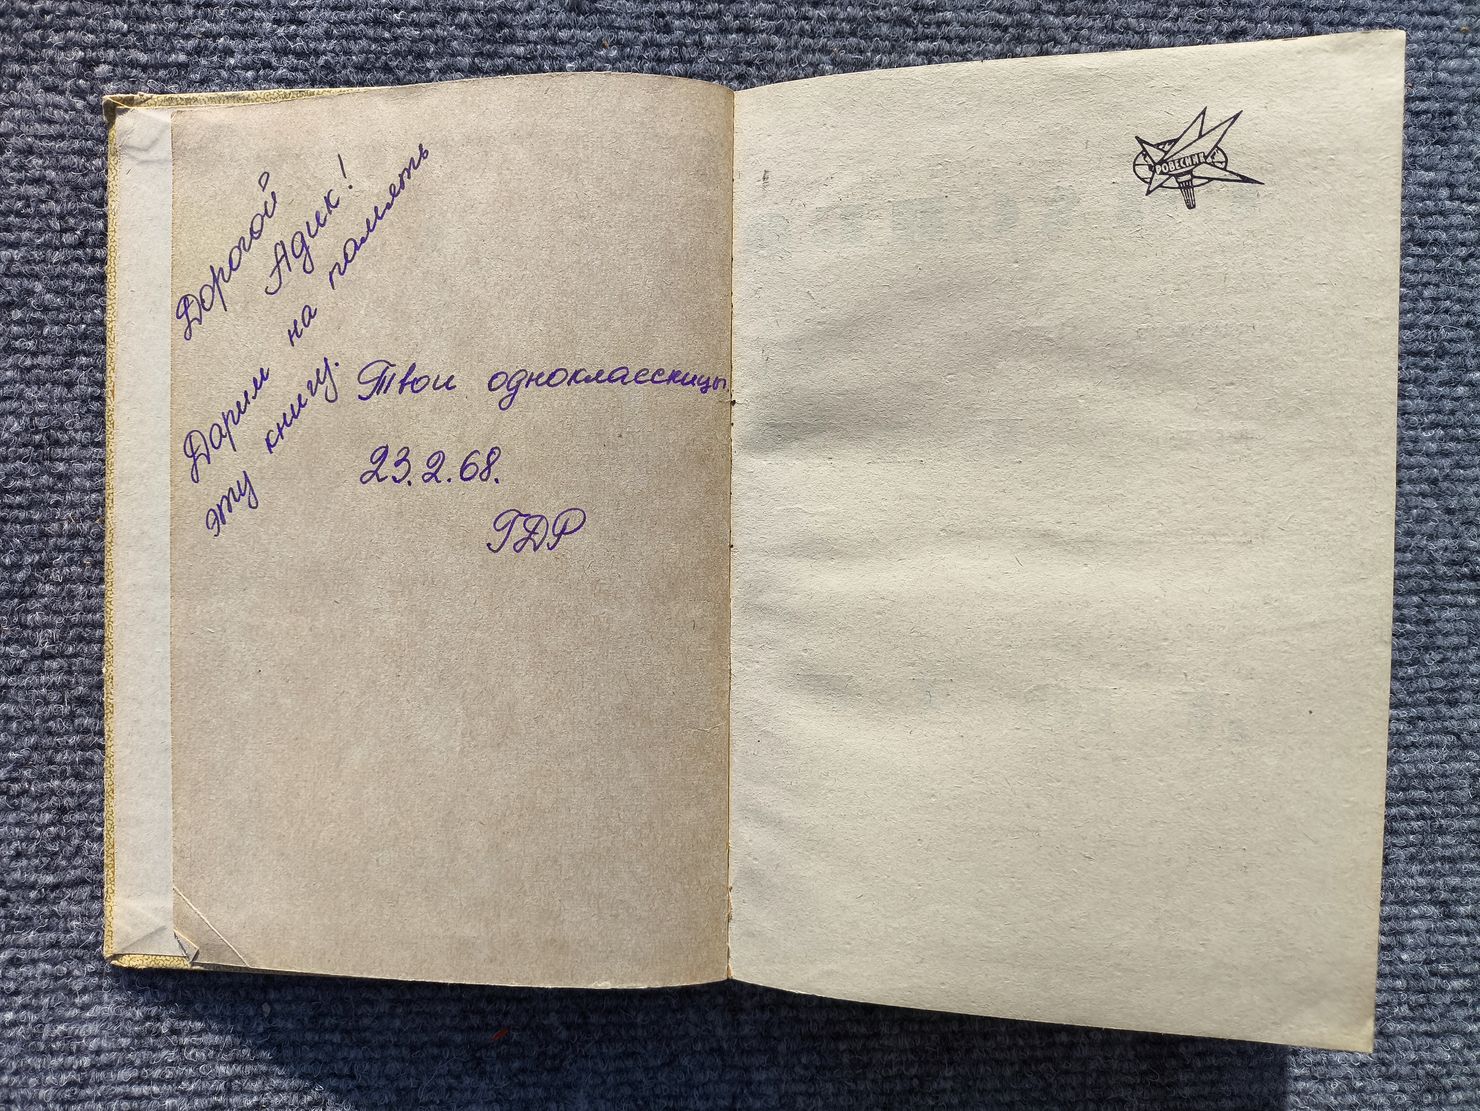 Дорогой
Адик!
Дарим на память
эту книгу.
Твои одноклассницы
23.2.68.
ГДР
РОВЕСНИК